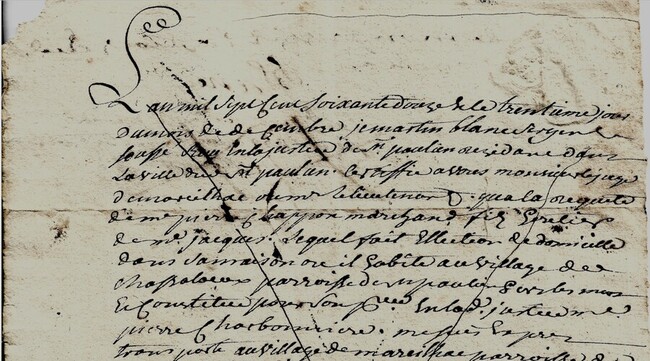 L'an mil Sept Cent Soixante douze & le trentieme jour
du mois de decembre je martin blanc sergen
En la justice de St paulian residant dans
La ville de St paulian Certiffie a vous monsieur le juge
de ou mr le lieutenant qua la Requete
de me pierre Chappon marchand fiz &
de me jacques. Lequel fait Ellection de domicille
dans Sa maison ou il habite au village de
Chassaleux parroisse de St paulian
Et Constitue pour son En lad. justice me
pierre Charbonniere. me suis Expres
transporté au village de marcilhac parroisse de